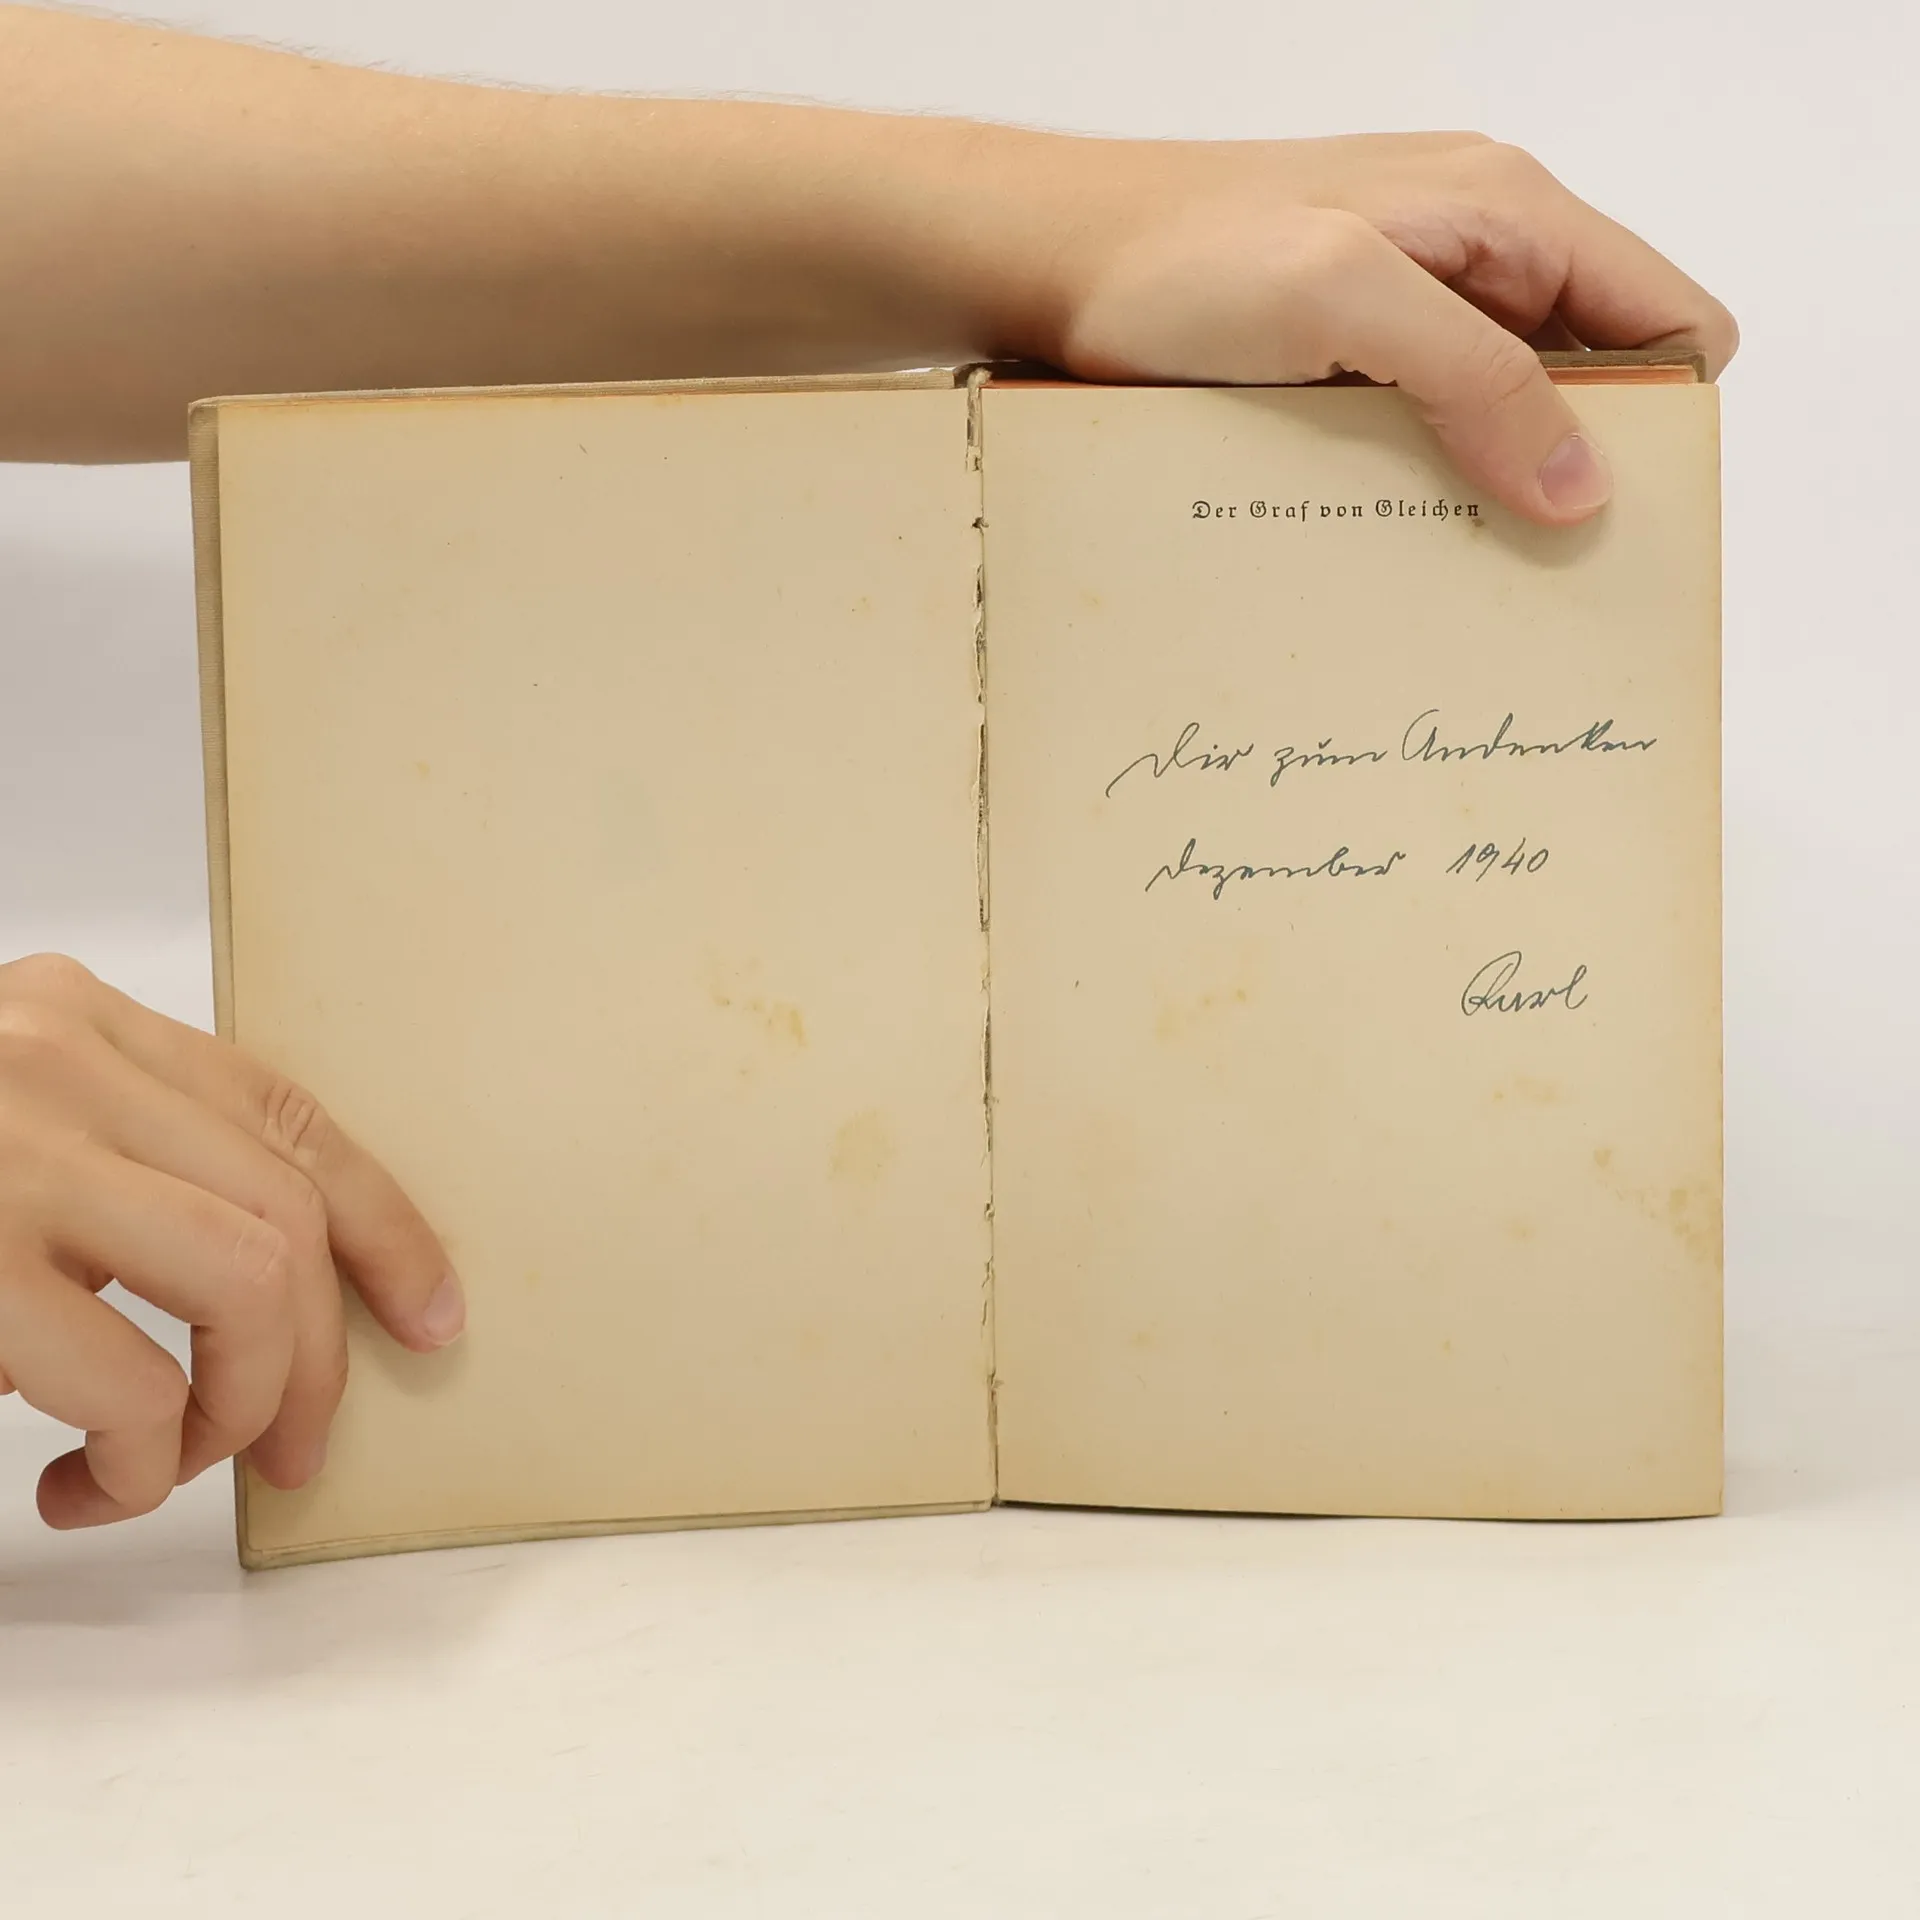 Der Graf von Gleichen
Dir zum Andenken
Dezember 1940
Karl